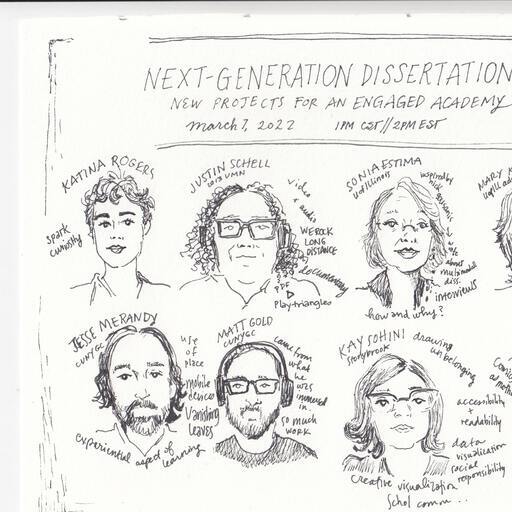 NEXT-GENERATION DISSERTATION
NEW PROJECTS FOR AN ENGAGED ACADEMY
march 7, 2022 1PM CST//2PM EST
KATINA ROGERS
spark
curiosity
JUSTIN SCHELL
2013 UMN
video
+ audio
WE ROCK
LONG
DISTANCE
documentary
PDF
Play triangles
SONIA ESTIMA
inspired by
nick
sousanis
about
multimodal
diss.
interviews
how and why?
MARY
JESSE MERANDY
CUNY GC
use
of
place
mobile
devices
Vanishing
Leaves
experiential aspect of
learning
MATT GOLD
CUNY GC
came from
what
he
was
immersed
in.
so much
work
KAY SOHINI
stonybrook
drawing
unbelonging
accessibility
+
readability
data
visualization
social
responsibility
creative visualization
Schol comm...